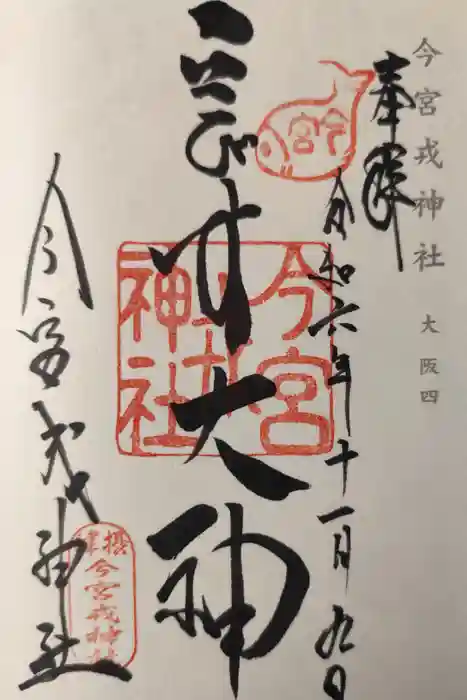 今宮戎神社 大阪四
奉拝
令和六年十一月九日
今宮
ゑびす大神
今宮戎
神社
今宮戎神社
今宮戎神社